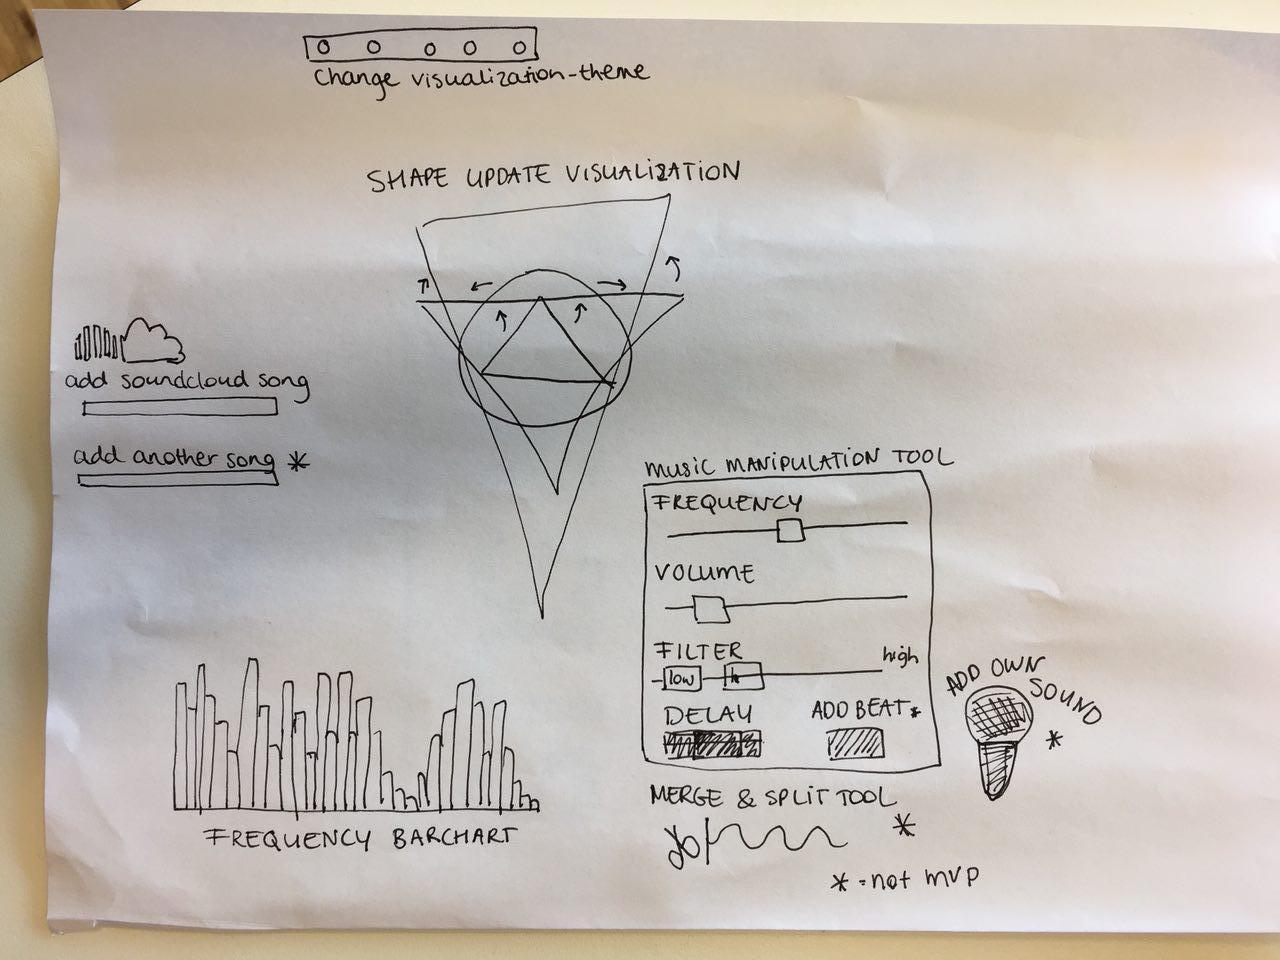 Change visualization-theme
SHAPE UPDATE VISUALIZATION
add soundcloud song
add another song *
MUSIC MANIPULATION TOOL
FREQUENCY
VOLUME
FILTER
low
high
DELAY
ADD BEAT *
ADD OWN
SOUND
*
MERGE & SPLIT TOOL
*
* = not mvp
FREQUENCY BARCHART